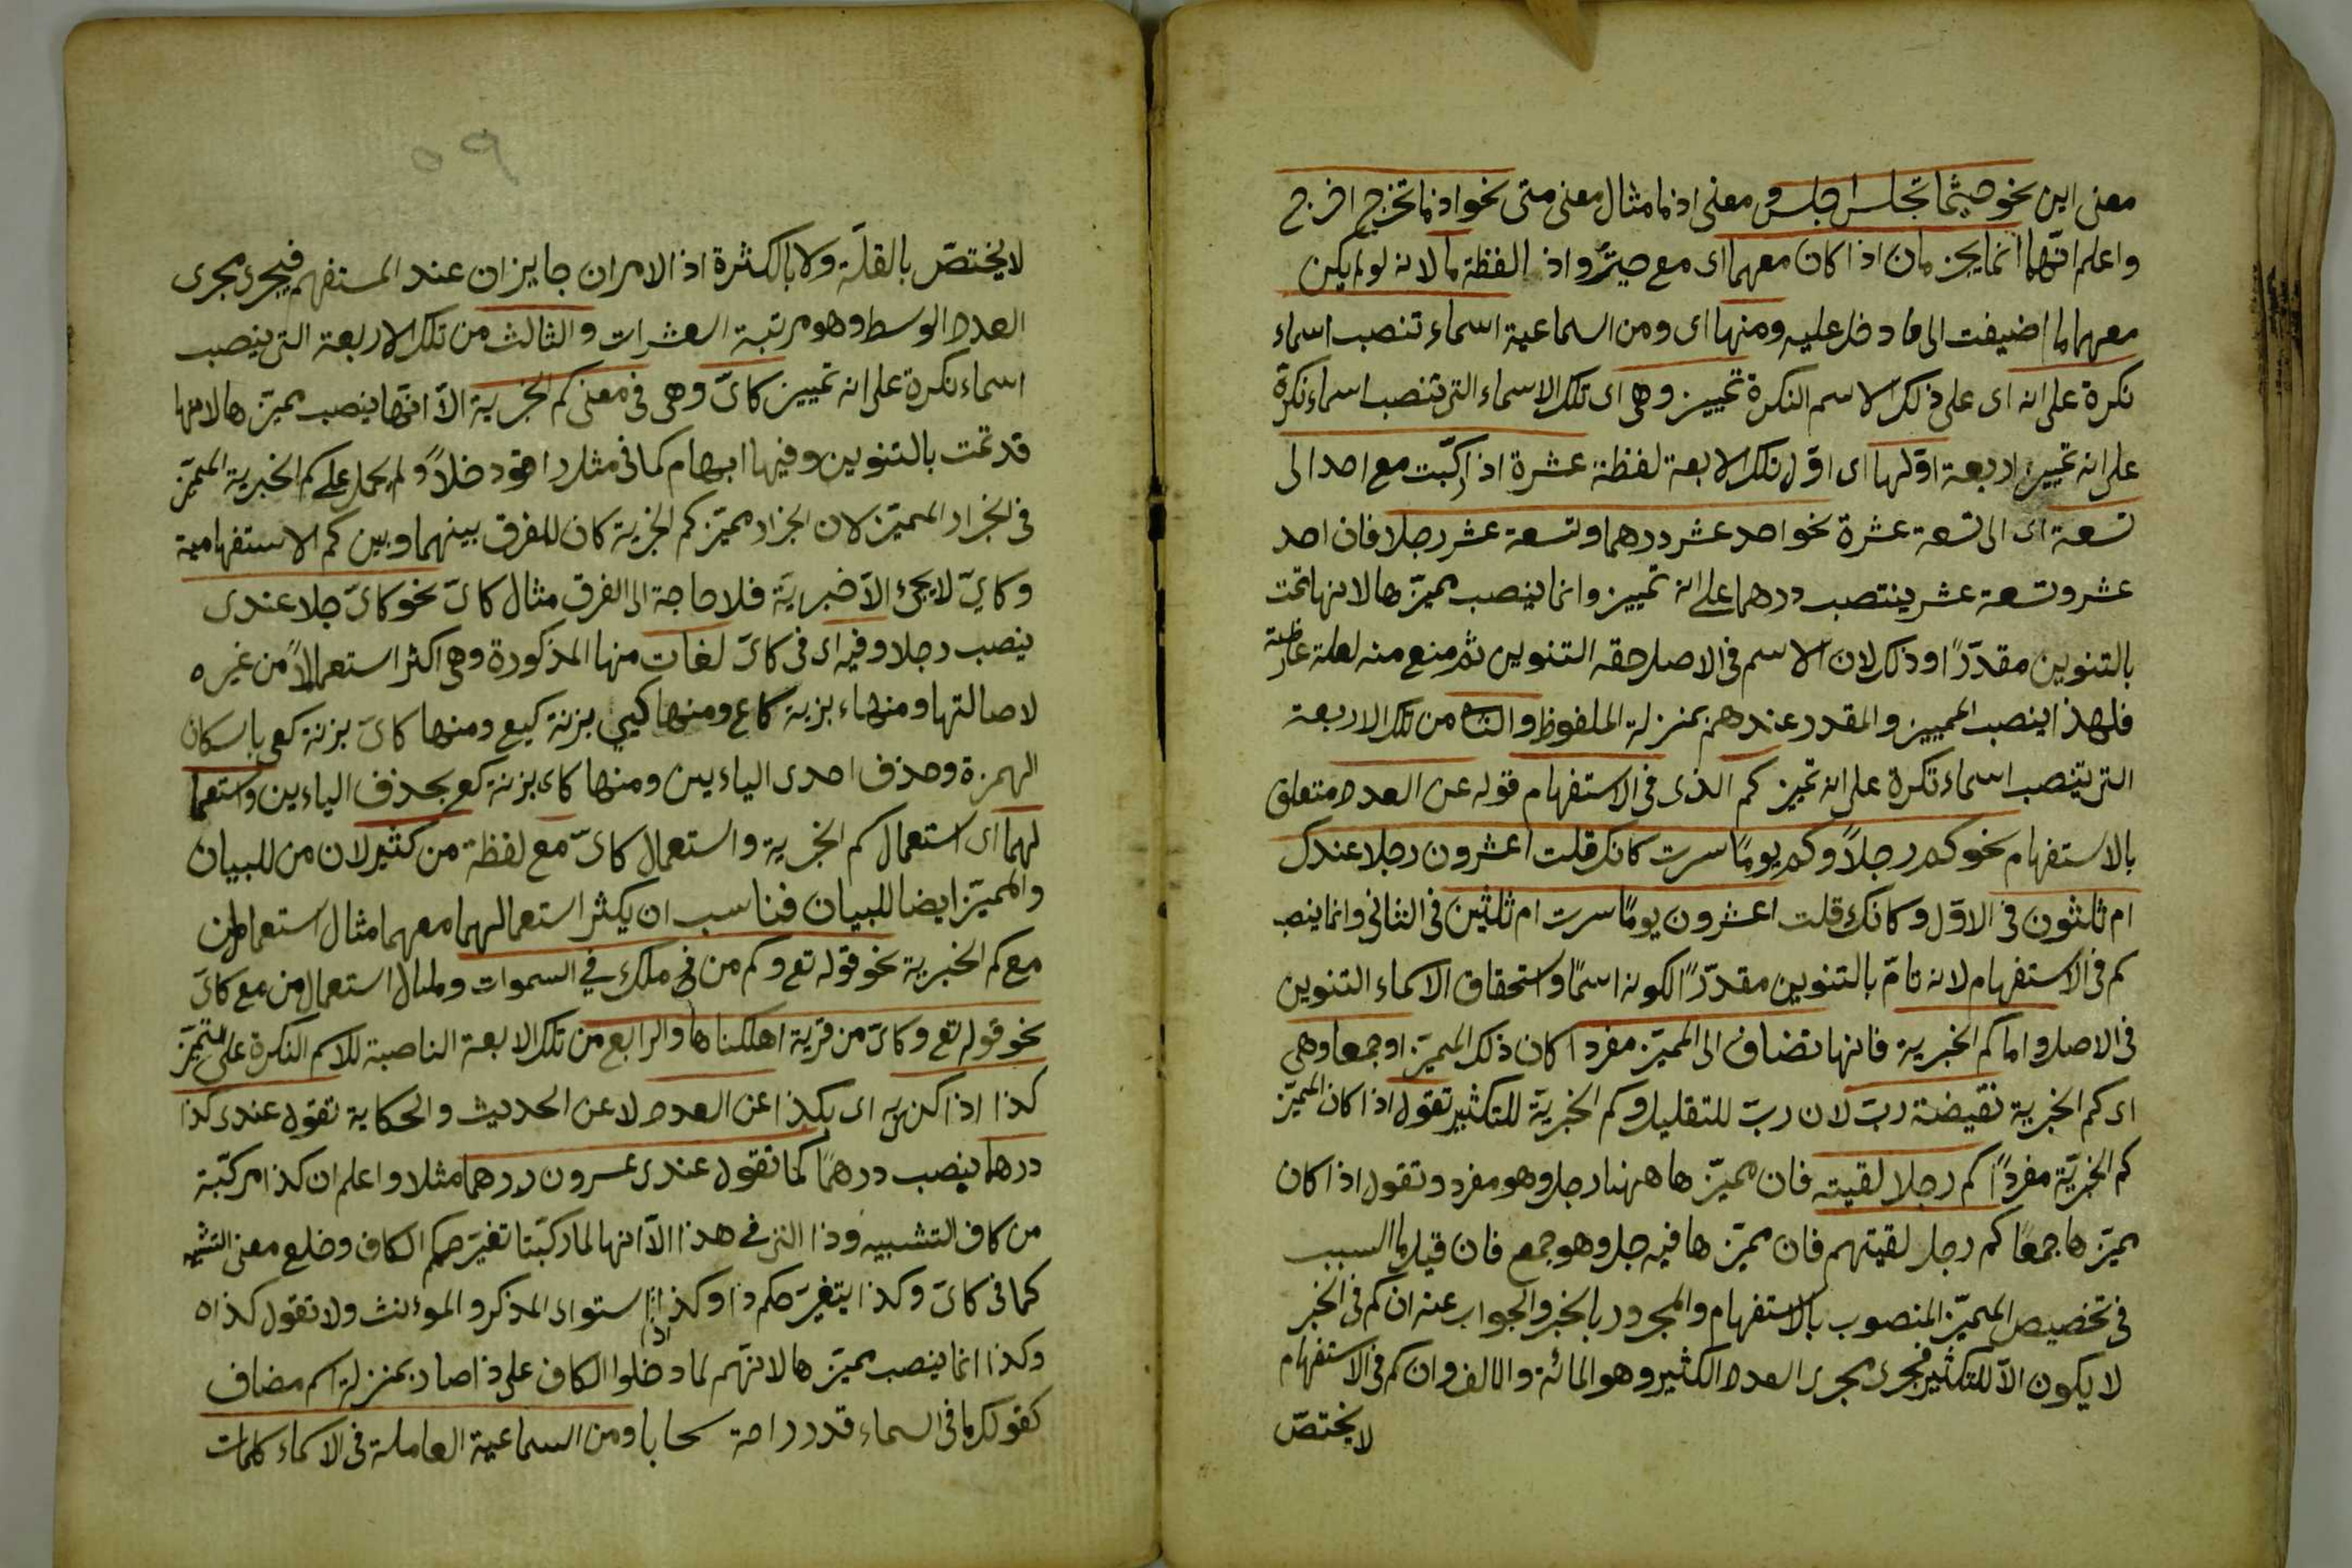 معنى اين نحو حيثما تجلس اجلس ومعنى اذ ما مثال معنى متى نحو اذ ما تخرج اخرج
واعلم انهما انما يجزمان اذا كان معهما اى مع حيث واذ لفظة ما لانه لو لم يكن
معهما ما اضيفت الى ما دخل عليه ومنها اى ومن السماعية اسماء تنصب اسماء
نكرة على انه اى على ذلك الاسم النكرة تمييز وهى اى تلك الاسماء التى تنصب اسماء نكرة
على انه تمييز اربعة اولها اى اول تلك الاربعة لفظة عشرة اذا ركبت مع احد الى
تسعة اى الى تسعة عشرة نحو احد عشر درهما وتسعة عشر رجلا فان احد
عشر وتسعة عشر ينتصب درهما على انه تمييز وانما ينصب مميزها لانها تمت
بالتنوين مقدرًا وذلك لان الاسم فى الاصل حقه التنوين ثم منع منه لعلة عارضة
فلهذا ينصب المميز والمقدر عندهم بمنزلة الملفوظ والثانى من تلك الاربعة
التى تنصب اسماء نكرة على انه تميز كم الذى فى الاستفهام قوله عن العدد متعلق
بالاستفهام نحو كم رجلاً وكم يومًا سرت كانك قلت اعشرون رجلا عندك
ام ثلثون فى الاول وكانك قلت اعشرون يومًا سرت ام ثلثين فى الثانى وانما ينصب
كم فى الاستفهام لانه تامّ بالتنوين مقدّرًا لكونه اسمًا واستحقاق الاسماء التنوين
فى الاصل واما كم الخبرية فانها تضاف الى المميّز مفردا كان ذلك المميّز اوجمعا وهى
اى كم الخبرية نقيضة ربّ لان ربّ للتقليل وكم الخبريّة للتكثير تقول اذا كان المميّز
كم الخبريّة مفردًا كم رجلا لقيته فان مميّزها ههنا رجل وهو مفرد وتقول اذا كان
مميّزها جمعًا كم رجل لقيتهم فان مميّزها فيه رجل وهو جمع فان قيل ما السبب
فى تخصيص المميّز المنصوب بالاستفهام والمجرور بالخبر والجواب عنه ان كم فى الخبر
لا يكون الاّ للتكثير فجرى مجرى العدد الكثير وهو المائة والالف وان كم فى الاستفهام
لا يختصّ
٥٩
لا يختصّ بالقلّة ولا بالكثرة اذ الامران جايزان عند المستفهم فيجرى مجرى
العدد الوسط وهو مرتبة العشرات والثالث من تلك الاربعة التى ينصب
اسماء نكرة على انه تمييز كاىّ وهى فى معنى كم الخبرية الاّ انها ينصب مميّزها لانها
قد تمت بالتنوين وفيها ابهام كما فى مثل راقود خلاًّ ولم يحمل على كم الخبرية المميّز
فى الجرار المميّز لان الجرار مميّز كم الخبرية كان للفرق بينهما وبين كم الاستفهامية
وكاىّ لا يجئ الاّ خبريّة فلا حاجة الى الفرق مثال كاىّ نحو كاىّ رجلا عندى
ينصب رجلا وفيه اى فى كاىّ لغات منها المذكورة وهى اكثر استعمالاً من غيره
لاصالتها ومنها كاء بزنة كاع ومنها كيئ بزنة كيع ومنها كاىّ بزنة كعى باسكان
الهمزة وحذف احدى الياءين ومنها كاى بزنة كع بحذف الياءين واستعما
لهما اى استعمال كم الخبرية واستعمال كاىّ مع لفظة من كثير لان من للبيان
والمميّز ايضا للبيان فناسب ان يكثر استعمالهما معهما مثال استعمال من
مع كم الخبرية نحو قوله تع وكم من ملك في السموات ومثال استعمال من مع كاىّ
نحو قوله تع وكاىّ من قرية اهلكناها والرابع من تلك الاربعة الناصبة للاسم النكرة على التميّز
كذا اذا كنى به اى بكذا عن العدد لا عن الحديث والحكاية تقول عندى كذا
درهما ينصب درهمًا كما تقول عندى عشرون درهما مثلا واعلم ان كذا مركّبة
من كاف التشبيه وذا التى فى هذا الاّ انها لما ركّبتا تغيّر حكم الكاف وخلع معنى التشبيه
كما فى كاىّ وكذا يتغيّر حكم ذا وكذا استوى المذكر والمؤنث ولا تقول كذه
وكذا انما ينصب مميّزها لانهم لما دخلوا الكاف على ذا صار بمنزلة اسم مضاف
كقولك ما فى السماء قدر راحة سحابا ومن السماعية العاملة فى الاسماء كلمات